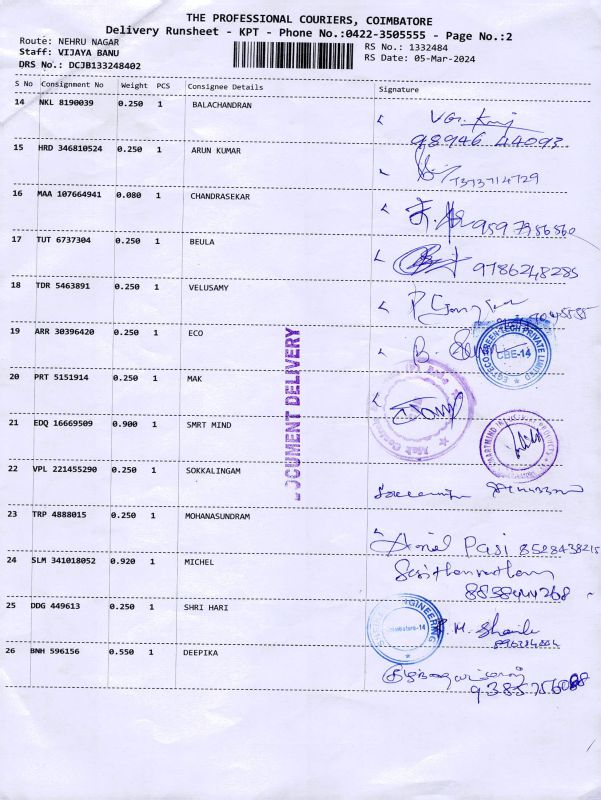 THE PROFESSIONAL COURIERS, COIMBATORE
Delivery Runsheet - KPT - Phone No.:0422-3505555 - Page No.:2
Route: NEHRU NAGAR
RS No.: 1332484
Staff: VIJAYA BANU
RS Date: 05-Mar-2024
DRS No.: DCJB133248402
S No Consignment No Weight PCS Consignee Details Signature
14 NKL 8190039 0.250 1 BALACHANDRAN
98946 44093
15 HRD 346810524 0.250 1 ARUN KUMAR
7373714729
16 MAA 107664941 0.080 1 CHANDRASEKAR
9597956560
17 TUT 6737304 0.250 1 BEULA
9786248285
18 TDR 5463891 0.250 1 VELUSAMY
19 ARR 30396420 0.250 1 ECO
EGTECO GREENTECH PRIVATE LIMITED
CBE-14
20 PRT 5151914 0.250 1 MAK
DOCUMENT DELIVERY
21 EDQ 16669509 0.900 1 SMRT MIND
22 VPL 221455290 0.250 1 SOKKALINGAM
23 TRP 4888015 0.250 1 MOHANASUNDRAM
Pasi 8528438215
24 SLM 341018052 0.920 1 MICHEL
25 DDG 449613 0.250 1 SHRI HARI
ENGINEERING
Coimbatore-14
26 BNH 596156 0.550 1 DEEPIKA